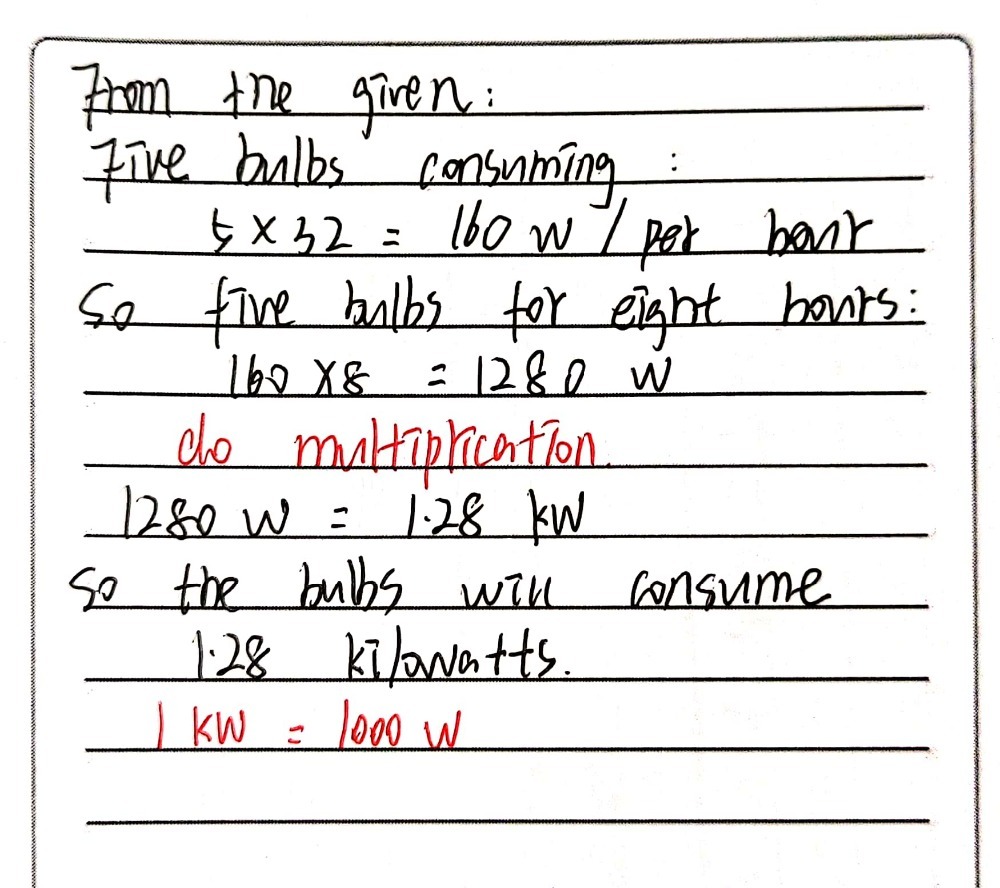 From the given:
Five bulbs consuming:
5 × 32 = 160 W / per hour
So five bulbs for eight hours:
160 × 8 = 1280 W
do multiplication.
1280 W = 1.28 kW
So the bulbs will consume
1.28 kilowatts.
1 KW = 1000 W